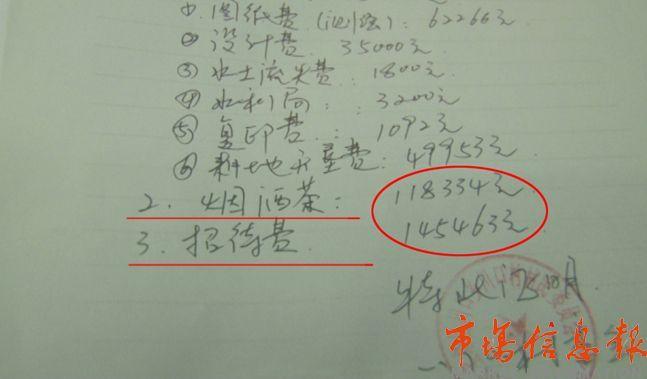 ①.图纸费(测绘):62266元
②设计费 35000元
③水土流失费:1800元
④水利局:3200元
⑤复印费:1092元
⑥耕地开垦费:49953元
2.烟酒茶:118334元
3.招待费 145463元
特此证明
市场信息報